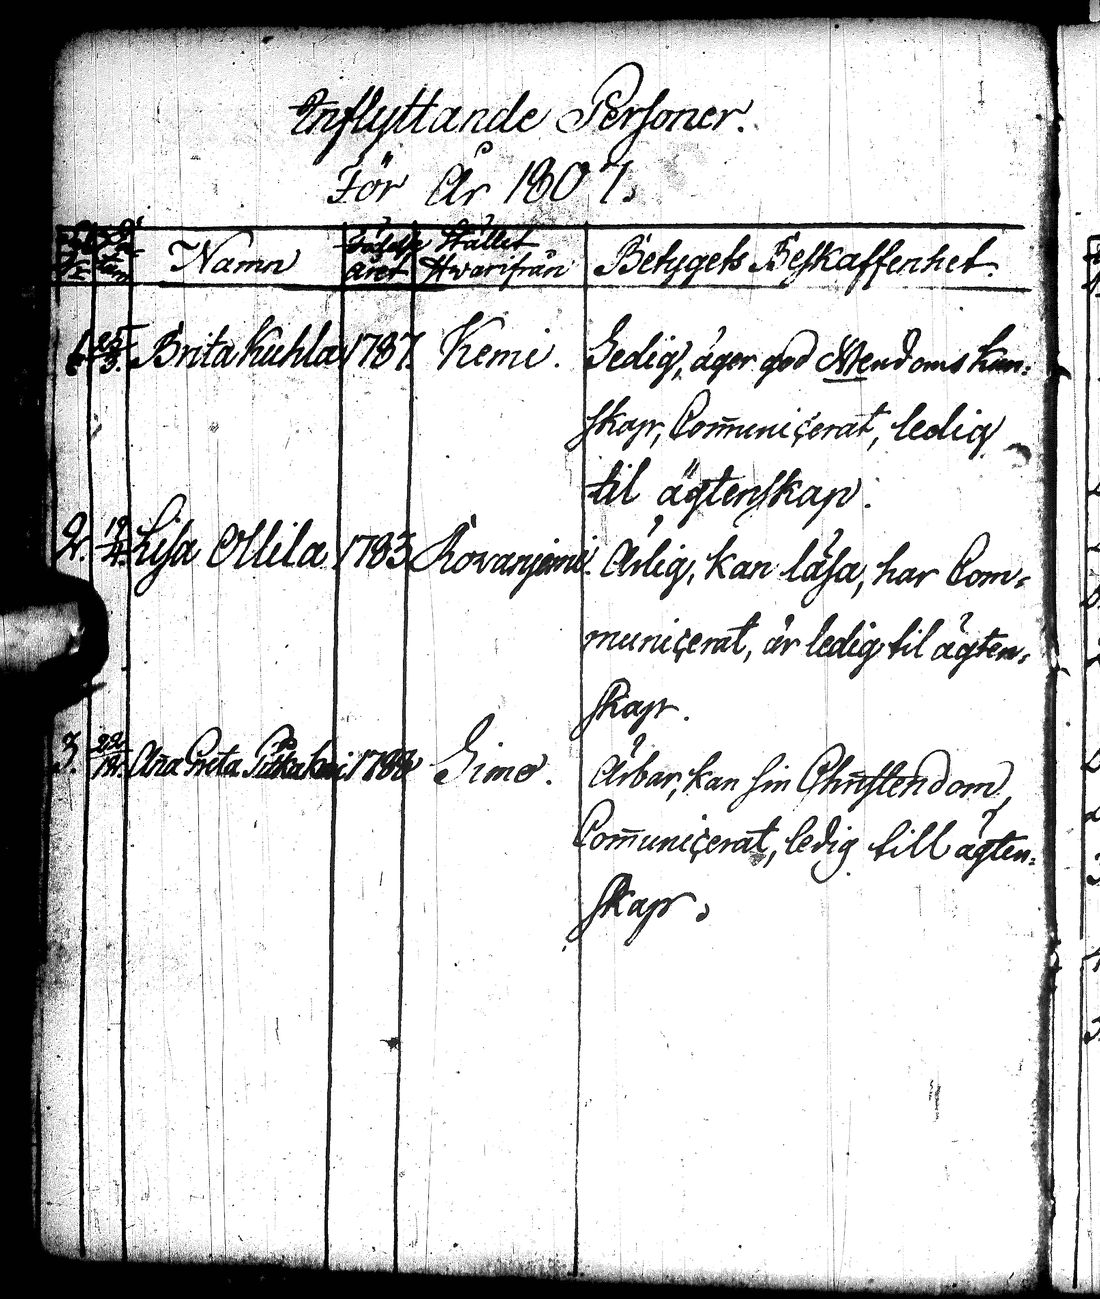 Inflyttande Personer.
För År 1807.
Namn Födelse året Stället Hvarifrån Betygets Beskaffenhet.
1. 25/3. Brita Kuhla 1787. Kemi. Sedig, äger god Xtendoms kun-
skap, Com̄uniçerat, ledig
til ägtenskap.
2. 19/4. Lisa Ollila 1783 Rovanjemi. Ärlig, kan läsa, har Com-
muniçerat, är ledig til ägten-
skap.
3. 22/12. Ana Greta 1788 Simo. Ärbar, kan sin Christendom,
Com̄uniçerat, ledig till ägten-
skap.